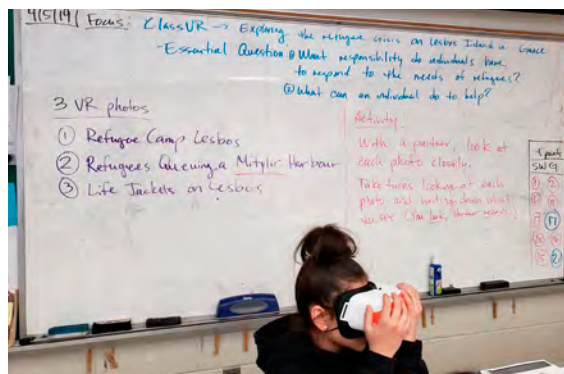 4/5/19 Focus: ClassVR → Exploring the refugee crisis on Lesbos Island in Greece
- Essential Question ① What responsibility do individuals have
to respond to the needs of refugees?
② What can an individual do to help?
3 VR photos
① Refugee Camp Lesbos
② Refugees Queuing a Mitylir Harbour
③ Life Jackets on Lesbos
Activity
With a partner, look at
each photo closely.
Take turns looking at each
photo and writing down what
you see
SWG